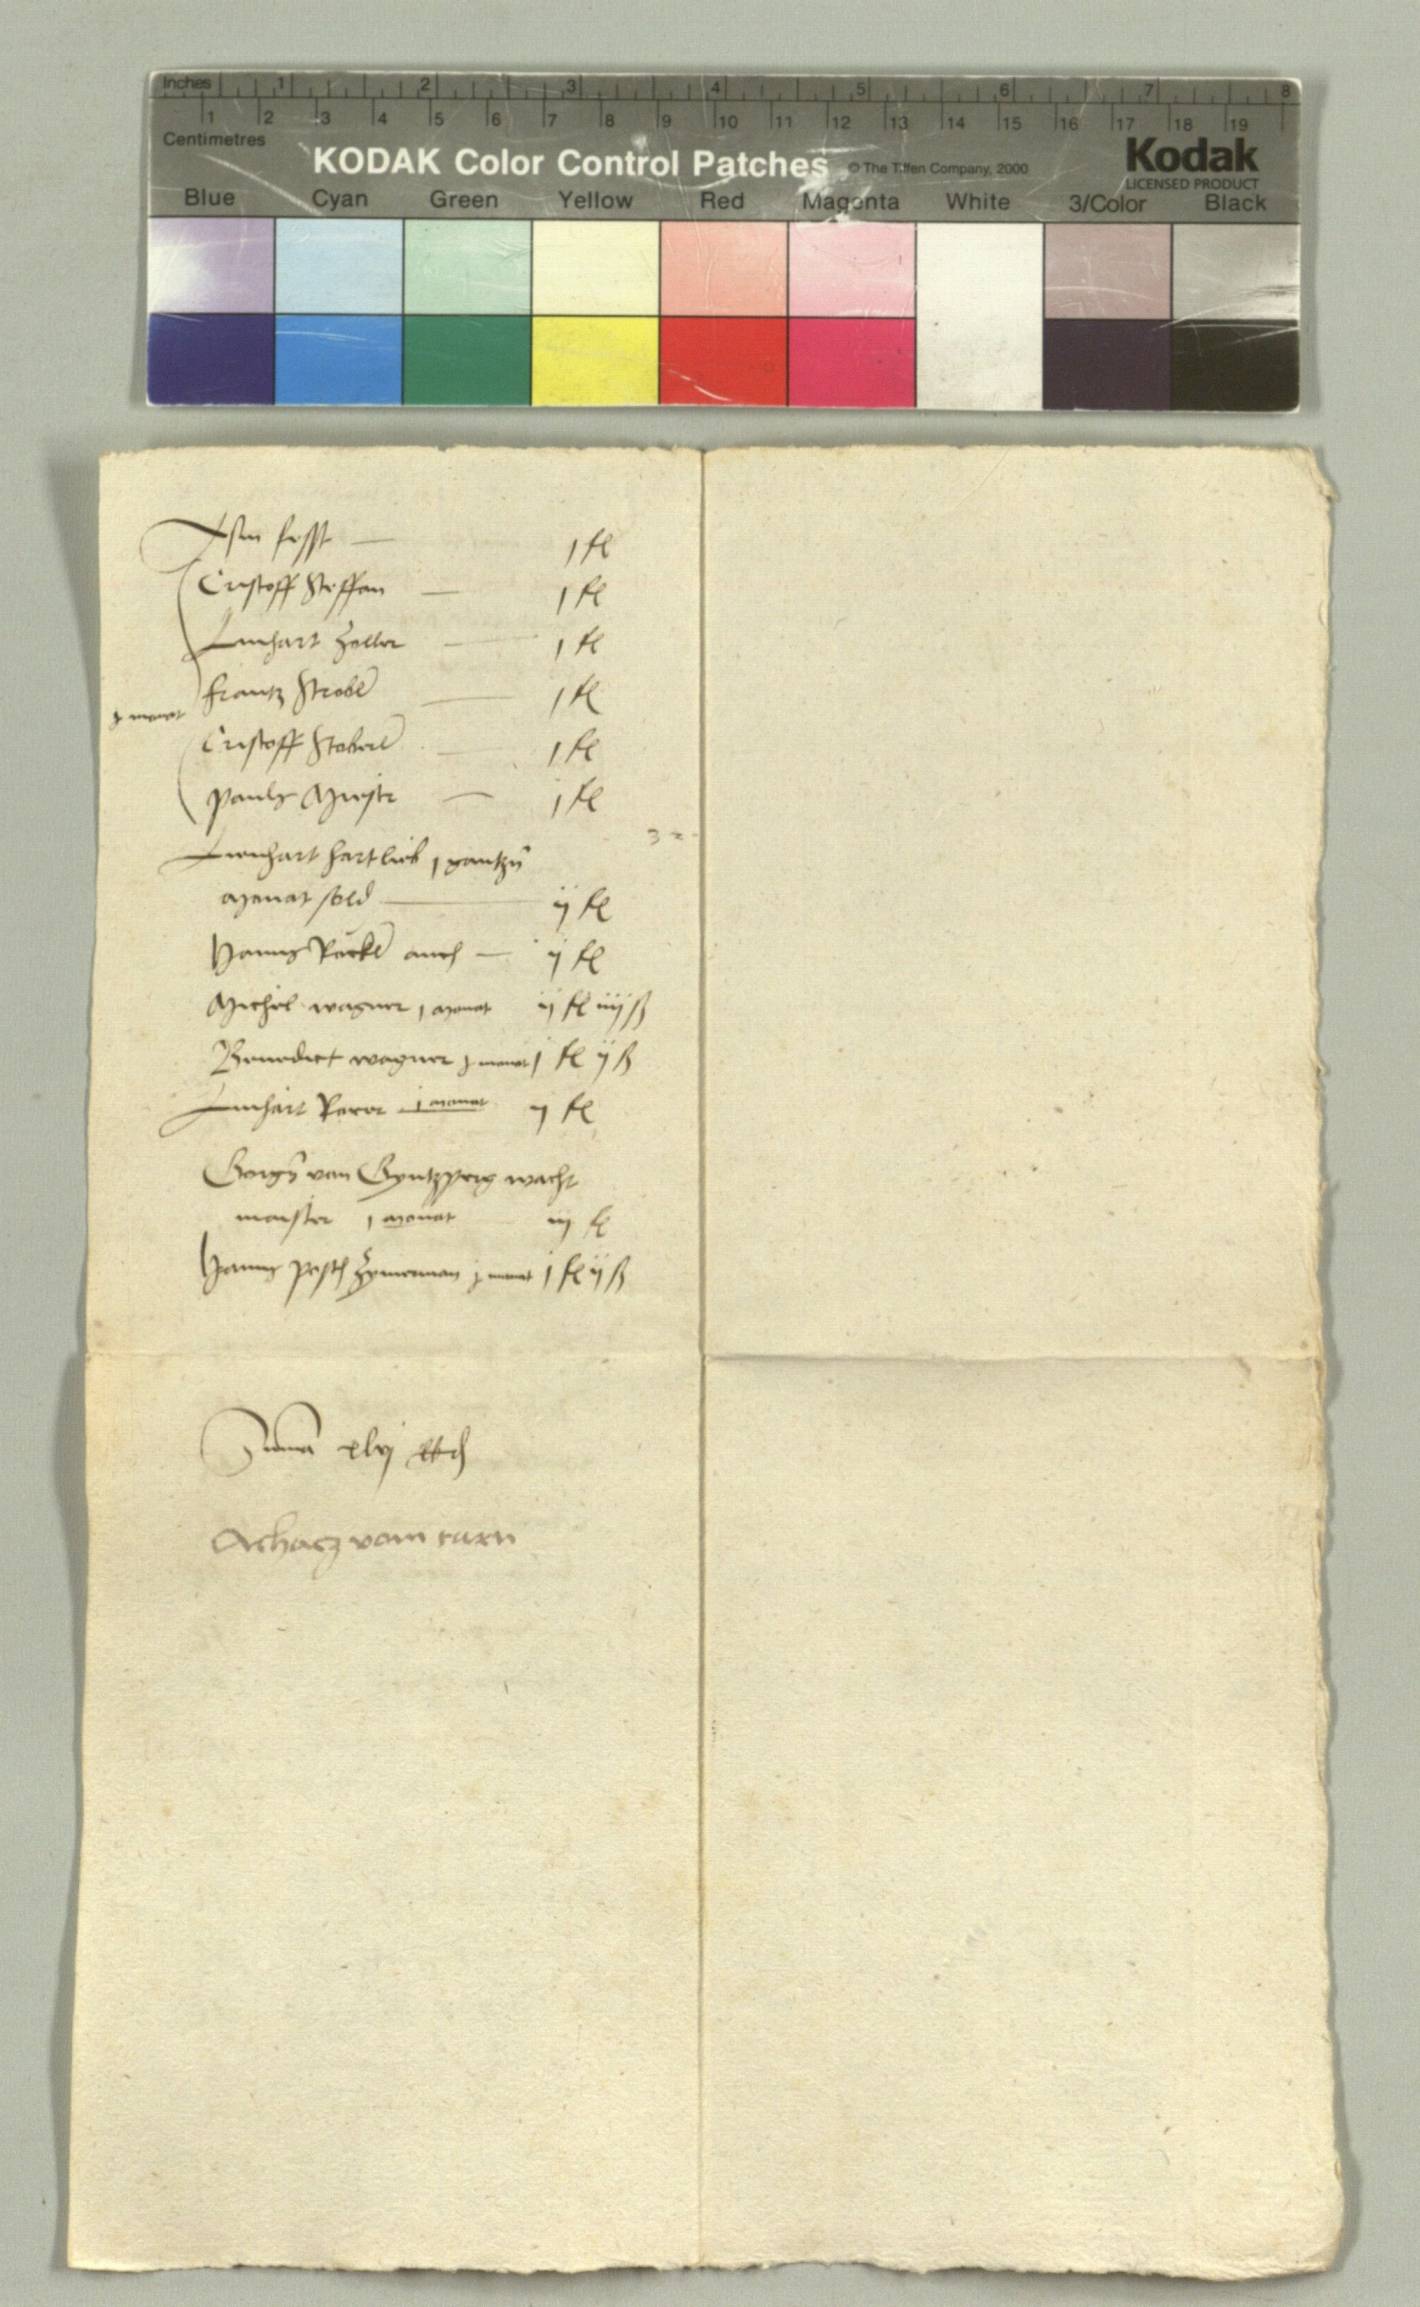 Inches 1 2 3 4 5 6 7 8
1 2 3 4 5 6 7 8 9 10 11 12 13 14 15 16 17 18 19
Centimetres
KODAK Color Control Patches © The Tiffen Company, 2000 Kodak
LICENSED PRODUCT
Blue Cyan Green Yellow Red Magenta White 3/Color Black
j fl
Cristoff Steffan j fl
Linhart Zeller j fl
Frantz Strobl j fl
monat
Cristoff Stoberl j fl
j fl
Lienhart hartlieb j gantzn
monat sold ij fl
Hanns Päckl auch ij fl
Michel wagner j monat ij fl iiij ß
Benedict wagner monat j fl ij ß
Linhart j monat ij fl
Gorg von Gyntzperg wacht
maister j monat iij fl
Hanns Zymerman monat j fl ij ß
Summa xlvj
Achacz vom turn